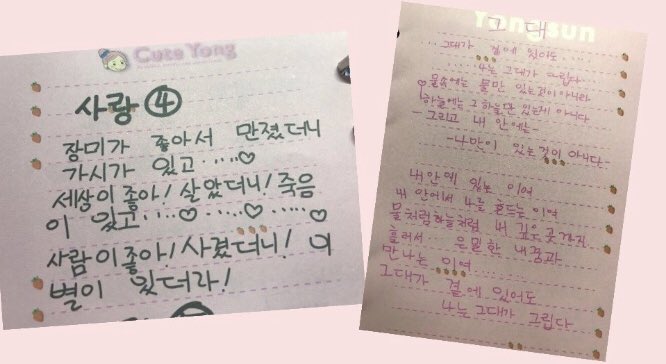 Cute Yong
사랑 ④
장미가 좋아서 만졌더니
가시가 있고.....♡
세상이 좋아! 살았더니! 죽음
이 있고....♡.....♡.....♡
사람이 좋아! 사겼더니! 이
별이 있더라!
Yongsun
그대
...그대가 곁에 있어도.....
.....나는 그대가 그립다...
♡물속에는 물만 있는것이 아니라
하늘에는 그 하늘만 있는게 아니다
-그리고 내 안에는-
-나만이 있는것이 아니다-
내안에 있는 이여
내 안에서 나를 흔드는 이여
물처럼 하늘처럼 내 깊은 곳 까지
흘러서... 은밀한 내 꿈과
만나는 이여...
그대가 곁에 있어도
나는 그대가 그립다